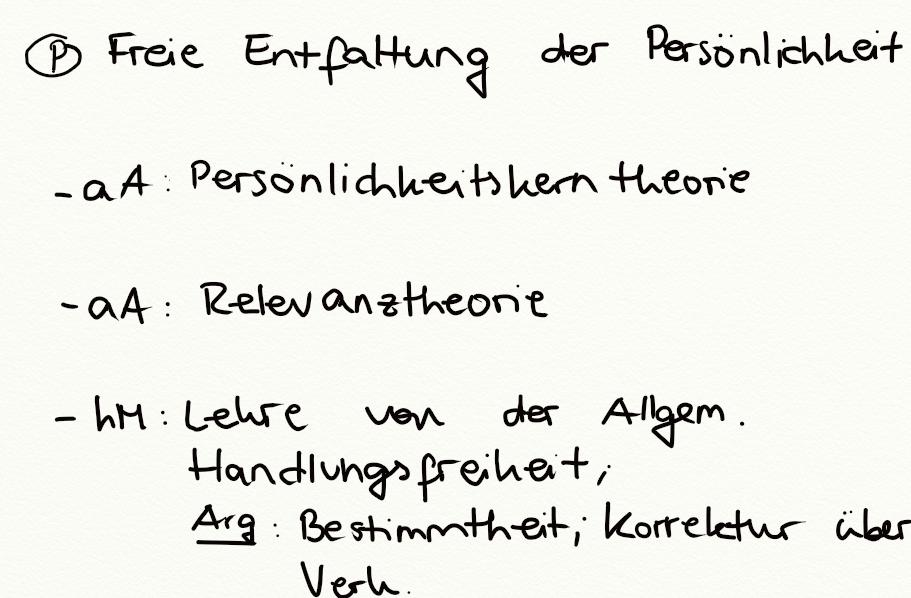 Ⓟ Freie Entfaltung der Persönlichkeit
- aA: Persönlichkeitskerntheorie
- aA: Relevanztheorie
- hM: Lehre von der Allgem.
Handlungsfreiheit;
Arg: Bestimmtheit; Korrektur über
Verh.